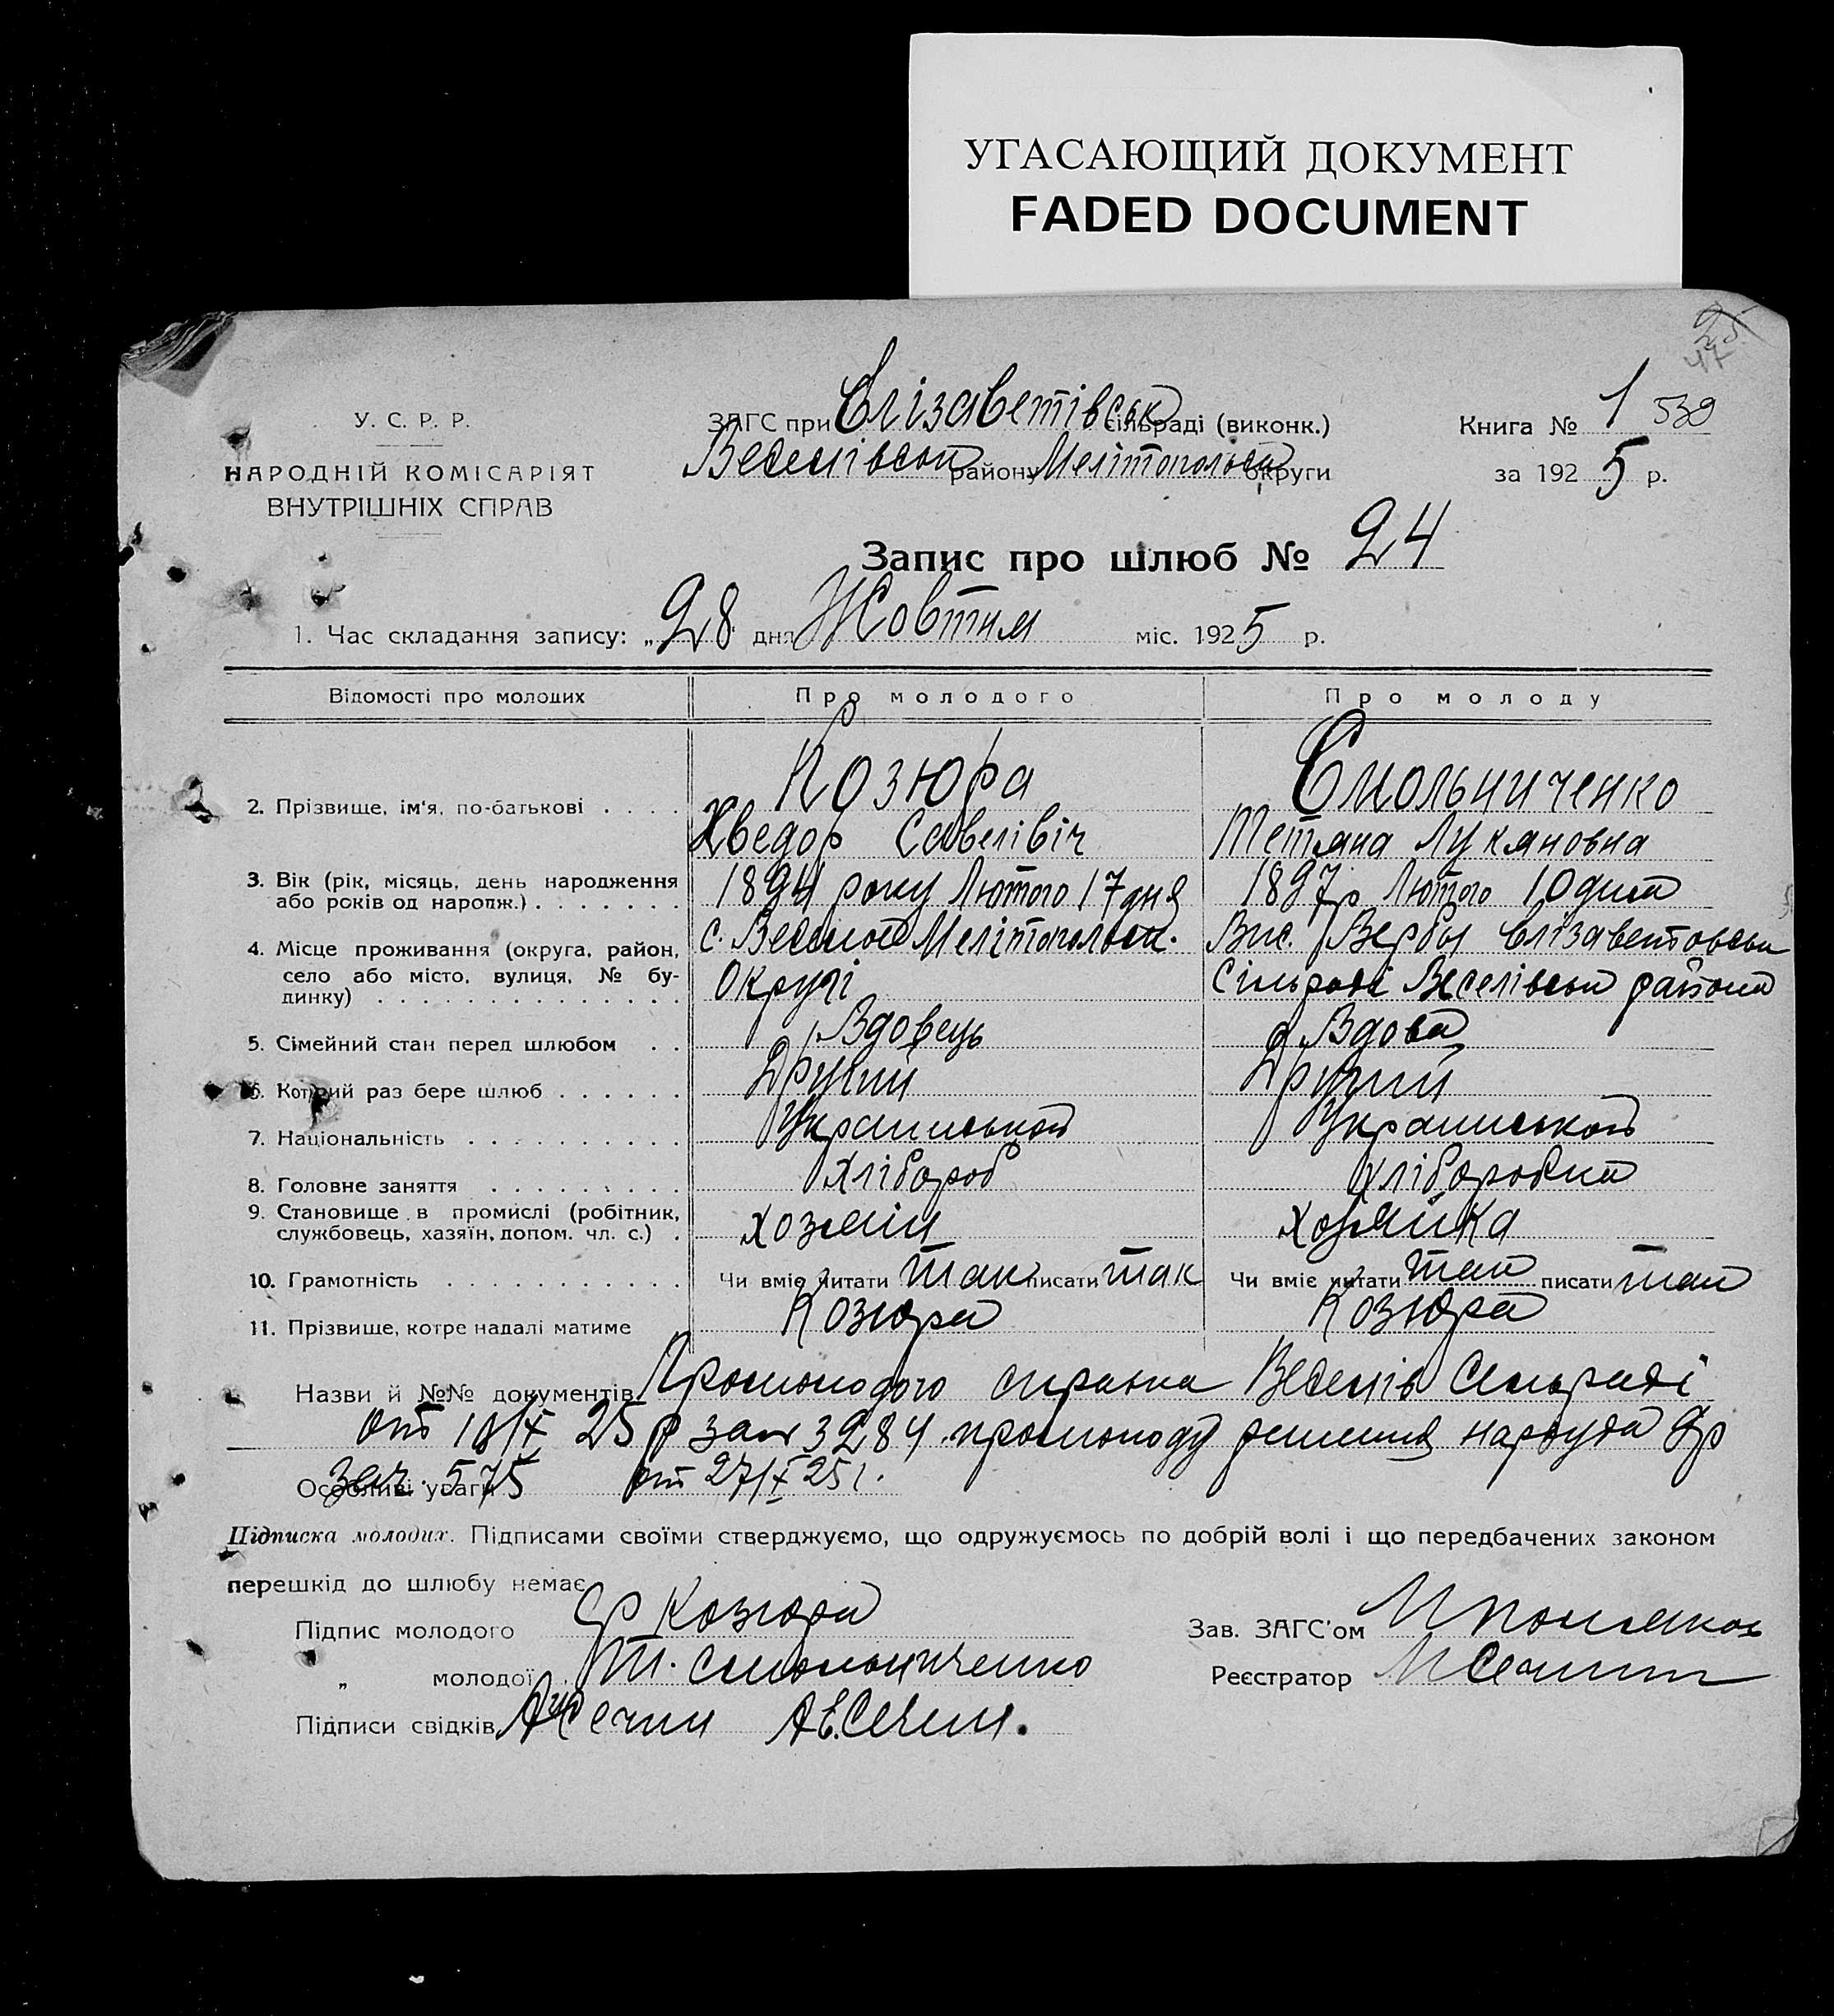 УГАСАЮЩИЙ ДОКУМЕНТ
FADED DOCUMENT
47
У. С. Р. Р.
НАРОДНІЙ КОМІСАРІЯТ
ВНУТРІШНІХ СПРАВ
ЗАГС при Єлізаветівськ сільраді (виконк.)
Веселівськ району Мелітопольськ округи
Книга № 1 539
за 1925 р.
Запис про шлюб № 24
1. Час складання запису: „28" дня Жовтня міс. 1925 р.
Відомості про молодих Про молодого Про молоду
2. Прізвище, ім'я, по-батькові . . . . Козюра Смольниченко
Хведор Савелівіч Тетяна Лукяновна
3. Вік (рік, місяць, день народження або років од народж.) . . . . . . . 1894 року Лютого 17 дня 1897 р Лютого 10 дня
4. Місце проживання (округа, район, село або місто, вулиця, № будинку) . . . . . . . . . . . . . . с. Веселое Мелітопольськ. Вис. Вербы Єлізаветовськ
Округі Сільраді Веселівськ района
5. Сімейний стан перед шлюбом . . Вдовець Вдова
6. Котрий раз бере шлюб . . . . . . Другий Другий
7. Національність . . . . . . . . . . Українськой Українськой
8. Головне заняття . . . . . . . . . Хлібороб Хлiборобка
9. Становище в промислі (робітник, службовець, хазяїн, допом. чл. с.) . хозяін хозяйка
10. Грамотність . . . . . . . . . . . Чи вміє читати так писати так Чи вміє читати так писати так
11. Прізвище, котре надалі матиме Козюра Козюра
Назви й №№ документів Промолодого справка Веселів Сельраді
от 25 р за № 3284 промолоду решения нарсуда
Особливі уваги 575 от 27/X 25 г.
Підписка молодих. Підписами своїми стверджуємо, що одружуємось по добрій волі і що передбачених законом
перешкід до шлюбу немає
Підпис молодого Козюра
„ молодої Т. Смольниченко
Підписи свідків
Зав. ЗАГС'ом
Реєстратор